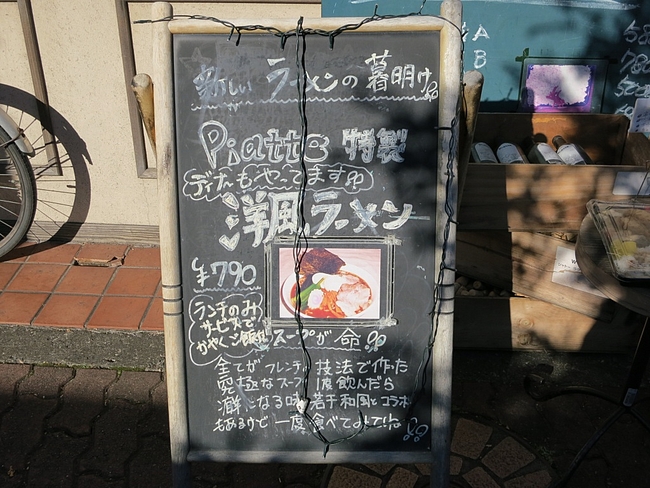 新しいラーメンの暮明け
Piatto 特製
ディナーもやってます
洋風ラーメン
¥790
ランチのみ
サービスで
かやくご飯付
スープが命
全てがフレンチの技法で作った
究極なスープ 1度飲んだら
になる味 若干和風とコラボ
もあるけど一度食べてみてね
A
B